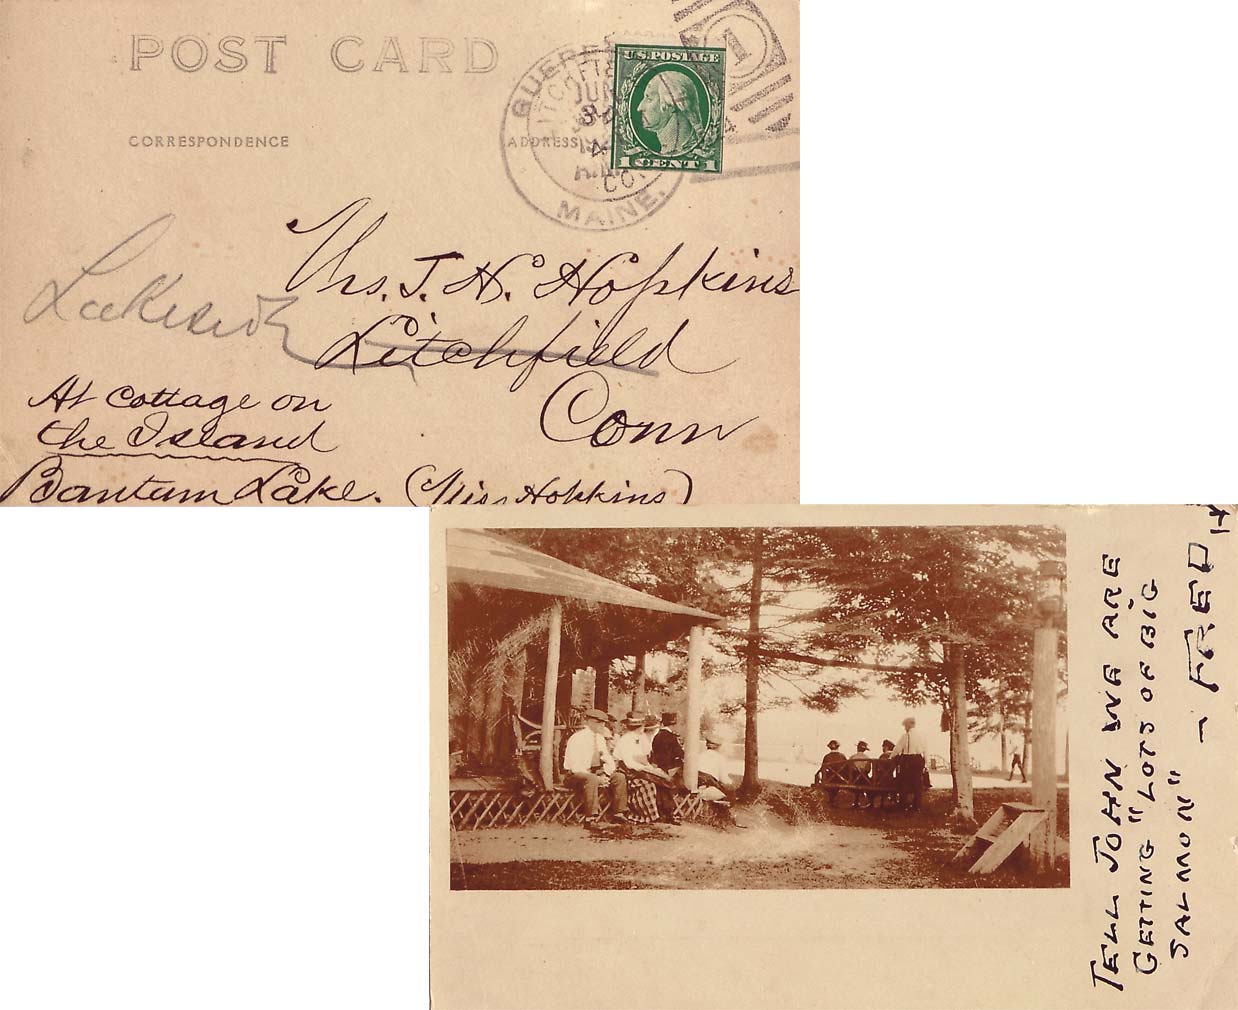 POST CARD
CORRESPONDENCE
ADDRESS
JUN
MAINE.
CO.
1
U.S. POSTAGE
1 CENT 1
Mrs. J. H. Hopkins
Lakeside
Litchfield
Conn
At Cottage on
the Island
Bantam Lake. (Miss Hopkins)
TELL JOHN WE ARE
GETTING "LOTS OF BIG
SALMON"
- FRED H